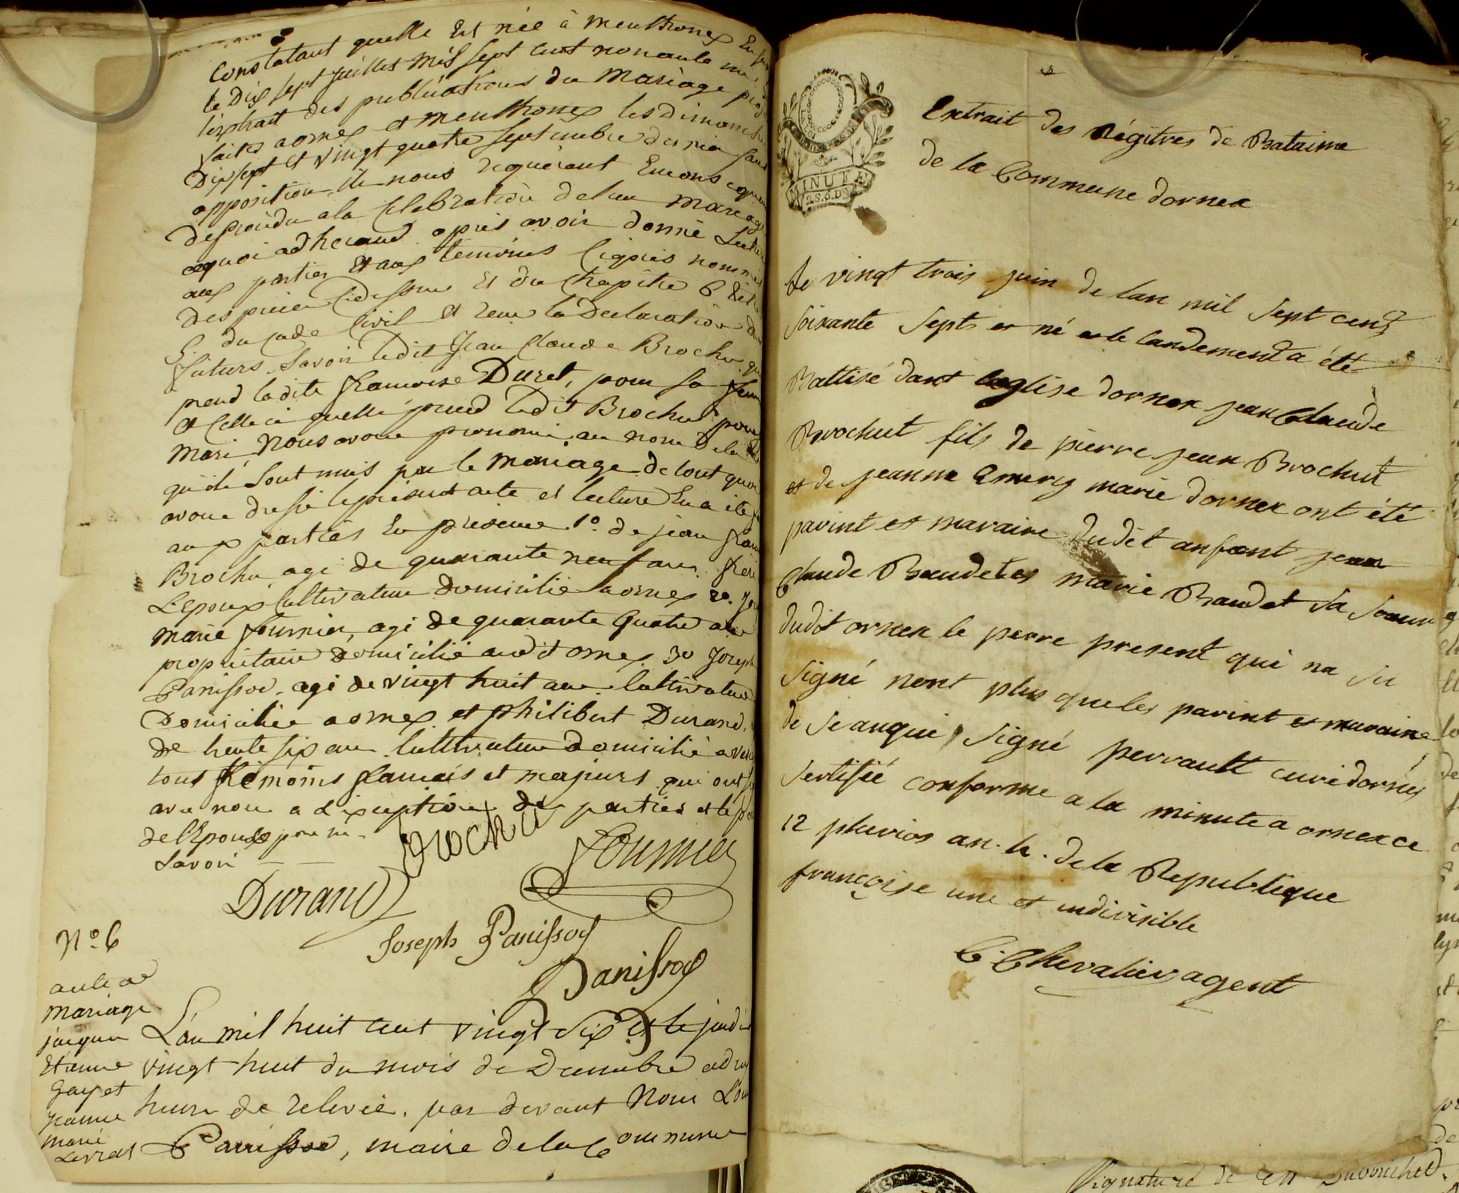 constatant quelle Est née à meuthonex En
le Dix sept juillet mil sept cent nonante
l'extrait des publications du mariage
faites a ornex et meuthonex les dimanches
Dix sept et vingt quatre septembre dernier sans
opposition. ils nous requerant En consequence
De proceder a la Celebration de leur mariage
aquoi adherant apres avoir donné Lecture
aux parties et aux temoins Cy après nommés
Des pieces Ci dessus Et du Chapitre 6 titre
5. du Code Civil et recu la Declaration
futurs. Savoir ledit Jean Claude Brochu
prend ladite françoise Duret, pour sa femme
et Celle ci quelle prend ledit Brochut pour
mari, Nous avons prononcé au nom De la
quils sont unis par le mariage. De tout quoi
avons dressé le present acte et lecture En a été
aux parties En presence 1º. de jean
Brochu agé de quarante neuf ans frere
L'epoux Cultivateur domicilié a ornex 2º.
marie fournier, agé de quarante quatre ans
proprietaire Domicilié audit ornex 3º Joseph
Panissod. agé de vingt huit ans Cultivateur
Domicilié a ornex et philibert Durand,
de trente six ans Cultivateur Domicilié a
tous temoins francais et majeurs qui ont
avec nous a l'exception des parties et le
de l'Epouse pour ne
Savoir
Brochu
Fournier
Durand
Joseph Panissod
Panissod
Nº 6
acte de
mariage
jacques
Etienne
Gay et
jeanne
marie
L'an mil huit cent vingt six et le jeudi
vingt huit du mois de Decembre a
heure de relevée. par devant Nous
Panissod, maire de la Commune
Extrait des Régitres de Bataime
de la Commune dornex
MINUTE
Le vingt trois juin de lan mil sept cent
soixante sept et né et le landemend a été
Battisé dant leglise dornex jean Claude
Brochut fils de pierre jean Brochut
et de jeanne Emery marié dornex ont été
parint et maraine dudit anfant jean
Claude Baudet et marie Baudet sa soeur
dudit ornex le perre present qui na su
signé nont plus que les parint et maraine
de se anquis signé perrault curé dornex
sertifié conforme a la minute a ornex ce
12 pluvios an. 4. de la Republique
françoise une et indivisible
C. Chevalier agent
Signature de